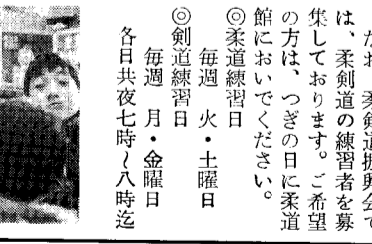 なお、柔剣道振興会で
は、柔剣道の練習者を募
集しております。ご希望
の方は、つぎの日に柔道
館においでください。
◎柔道練習日
毎週　火・土曜日
◎剣道練習日
毎週　月・金曜日
各日共夜七時〜八時迄